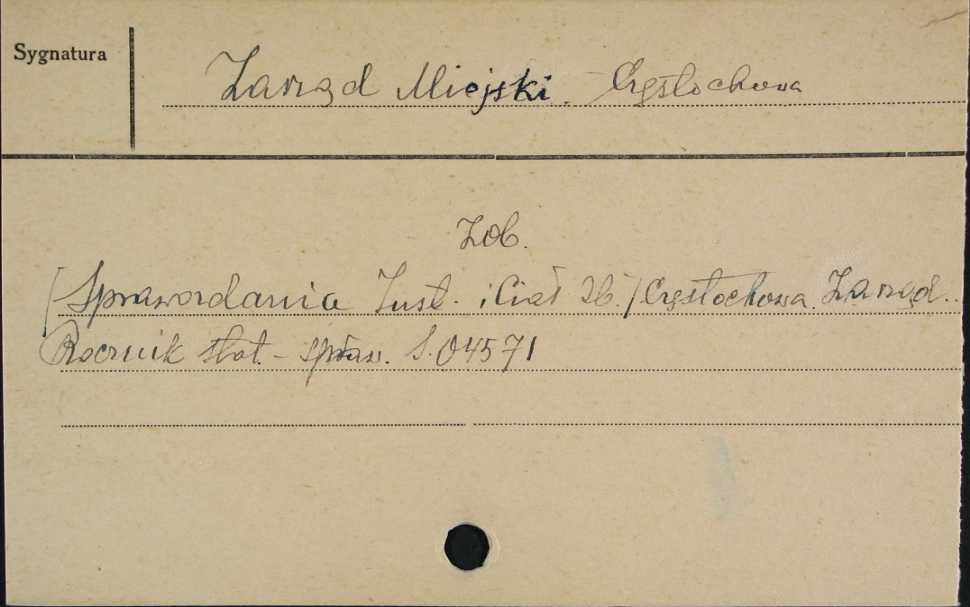 Sygnatura
Zarząd Miejski. Częstochowa
Zob.
[Sprawozdania Inst. i Ciał Zb.] Częstochowa. Zarząd.
Rocznik stat. - spraw. S. 04571